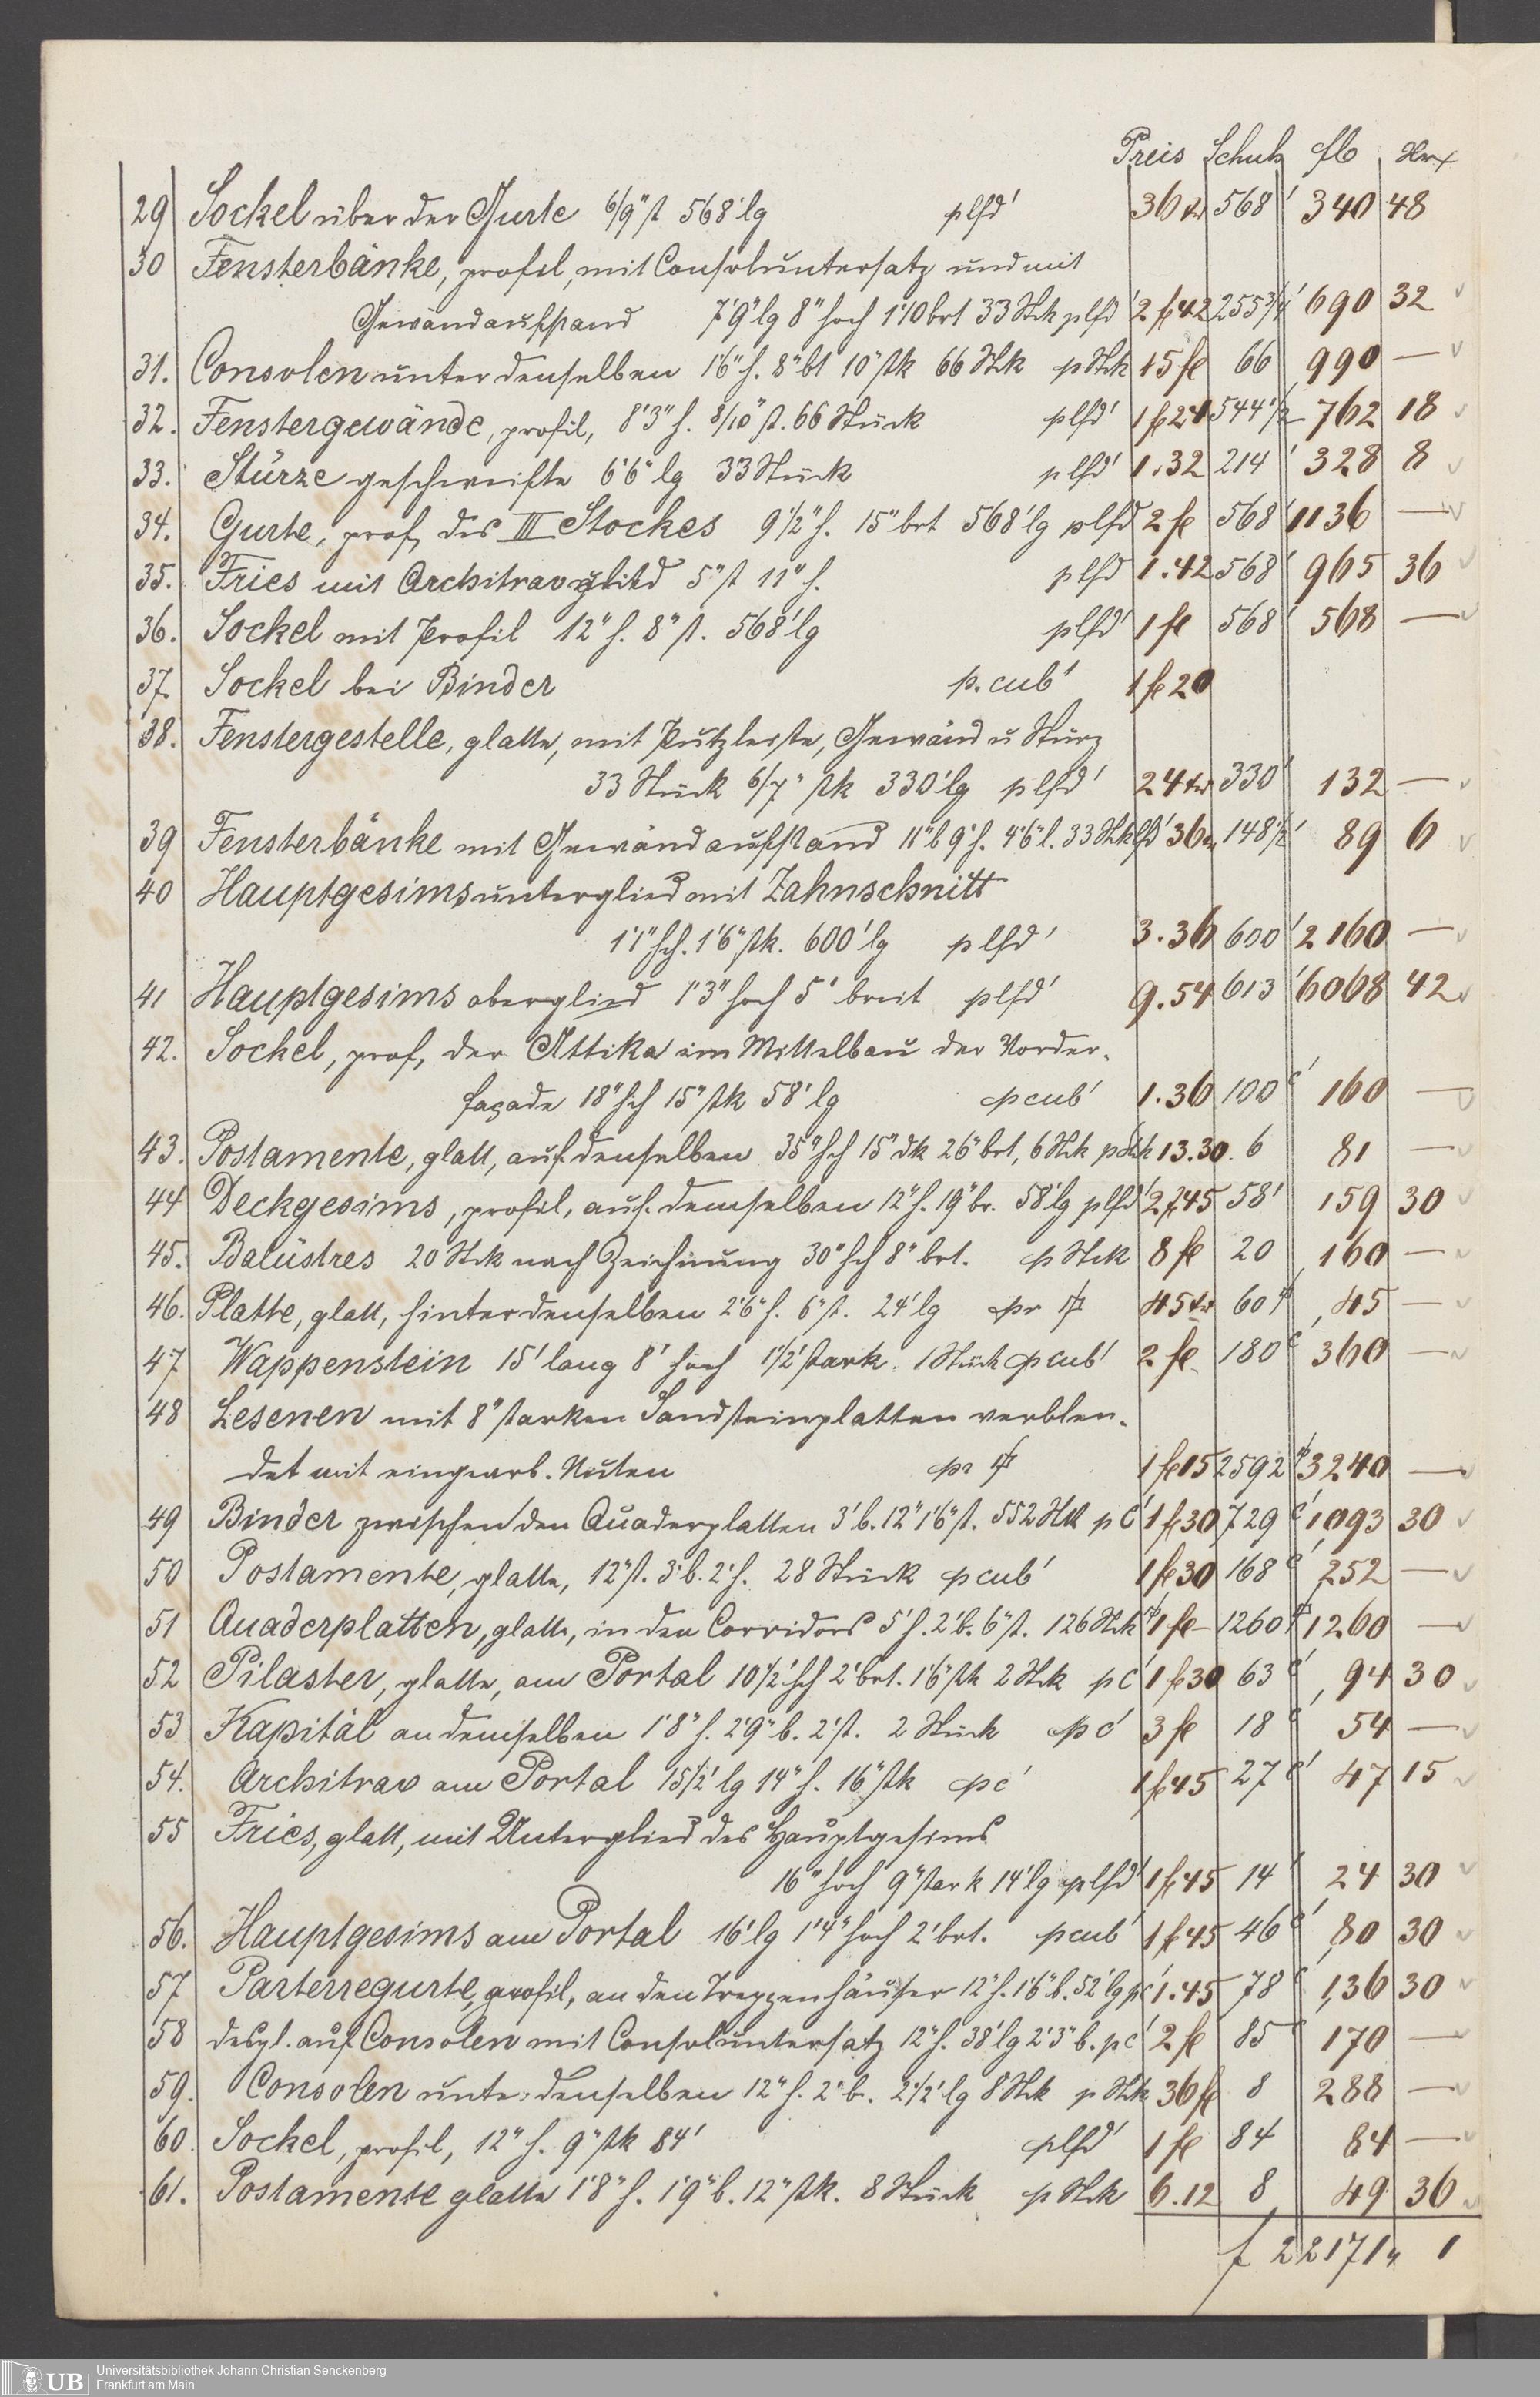 Preis Schuh fl Kr
29 Sockel über der Gurte 6/9" st 568' lg plfd' 36 kr 568' 340 48
30 Fensterbänke, profil, mit Consoluntersatz und mit
Gewändaufstand 7'9" lg 8" hoch 1'10 brt 33 Stk plfd' 2 fl 42 255 3/4' 690 32
31. Consolen unter denselben 1'6" h. 8" bt 10" stk 66 Stk p Stk 15 fl 66 990 —
32. Fenstergewände, profil, 8'3" h. 8/10" st. 66 Stück plfd' 1 fl 24 544 1/2 762 18
33. Stürze geschweifte 6'6" lg 33 Stück plfd' 1.32 214' 328 8
34. Gurte, prof, des III Stockes 9 1/2" h. 15" brt 568' lg plfd 2 fl 568' 1136 —
35. Fries mit Architravglied 5" st 11" h. plfd 1.42 568' 965 36
36. Sockel mit Profil 12" h. 8" st. 568' lg plfd' 1 fl 568' 568 —
37. Sockel bei Binder p. cub' 1 fl 20
38. Fenstergestelle, glatte, mit Putzleiste, Gewänd u Sturz
33 Stück 6/7" stk 330' lg plfd' 24 kr 330' 132 —
39 Fensterbänke mit Gewändaufstand 11" b 9" h. 4'6" l. 33 Stk lfd' 36 kr 148 1/2' 89 6
40 Hauptgesimsunterglied mit Zahnschnitt
1'1" hch. 1'6" stk. 600' lg plfd' 3.36 600' 2160 —
41 Hauptgesims oberglied 1'3" hoch 5' breit plfd' 9.54 613' 6068 42
42. Sockel, prof, der Attika im Mittelbau der Vorder-
façade 18" hch 15" stk 58' lg pcub' 1.36 100 c' 160 —
43. Postamente, glatt, auf denselben 35" hch 15" dk 26" brt, 6 Stk p Stk 13.30. 6 81 —
44 Deckgesims, profil, auf demselben 12" h. 19" br. 58' lg plfd' 2 fl 45 58' 159 30
45. Balüstres 20 Stk nach Zeichnung 30" hch 8" brt. p Stck 8 fl 20 160 —
46. Platte, glatt, hinter denselben 2'6" h. 6" st. 24' lg pr □' 45 kr 60 □' 45 —
47 Wappenstein 15' lang 8' hoch 1 1/2' stark. 1 Stück pcub' 2 fl 180 c' 360 —
48 Lesenen mit 8" starken Sandsteinplatten verblen-
det mit eingearb. Nuten pr □' 1 fl 15 2592 □' 3240 —
49 Binder zwischen den Quaderplatten 3' b. 12" 1'6" st. 552 Stk p c' 1 fl 30 729 c' 1093 30
50 Postamente, glatte, 12" st. 3' b. 2' h. 28 Stück pcub' 1 fl 30 168 c' 252 —
51 Quaderplatten, glatte, in den Corridors 5' h. 2' b. 6" st. 126 Stk □' 1 fl – 1260 □' 1260 —
52 Pilaster, glatte, am Portal 10 1/2' hch 2' brt. 1'6" stk 2 Stk p c' 1 fl 30 63 c' 94 30
53 Kapitäl an demselben 1'8" h. 2'9" b. 2' st. 2 Stück p c' 3 fl 18 c' 54 —
54. Architrav am Portal 15 1/2' lg 14" h. 16" stk pc' 1 fl 45 27 c' 47 15
55 Fries, glatt, mit Unterglied des Hauptgesims
16" hoch 9" stark 14' lg plfd' 1 fl 45 14' 24 30
56. Hauptgesims am Portal 16' lg 1'4" hoch 2' brt. pcub' 1 fl 45 46 c' 80 30
57 Parterregurte, profil, an den Treppenhäuser 12" h. 1'6" b. 52' lg pc' 1.45 78 c' 136 30
58 desgl. auf Consolen mit Consoluntersatz 12" h. 38' lg 2'3" b. pc' 2 fl 85 c' 170 —
59. Consolen unter denselben 12" h. 2' b. 2 1/2' lg 8 Stk p Stk 36 fl 8 288 —
60. Sockel, profil, 12" h. 9" stk 84' plfd' 1 fl 84 84 —
61. Postamente glatte 1'8" h. 1'9" b. 12" stk. 8 Stück p Stk 6.12 8 49 36
f 22171 " 1
UB
Universitätsbibliothek Johann Christian Senckenberg
Frankfurt am Main